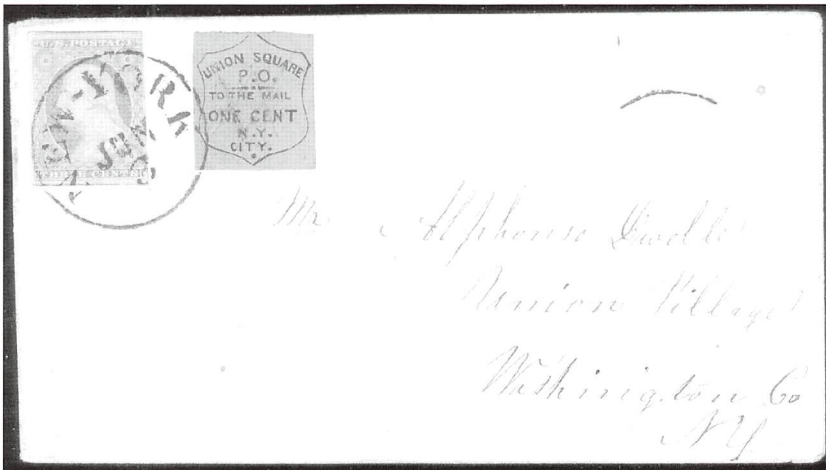 U.S. POSTAGE
THREE CENTS
NEW-YORK
JUN
9
UNION SQUARE
P.O.
TO THE MAIL
ONE CENT
N.Y.
CITY.
Mr Alphonso
Union Village
Washington Co
NY